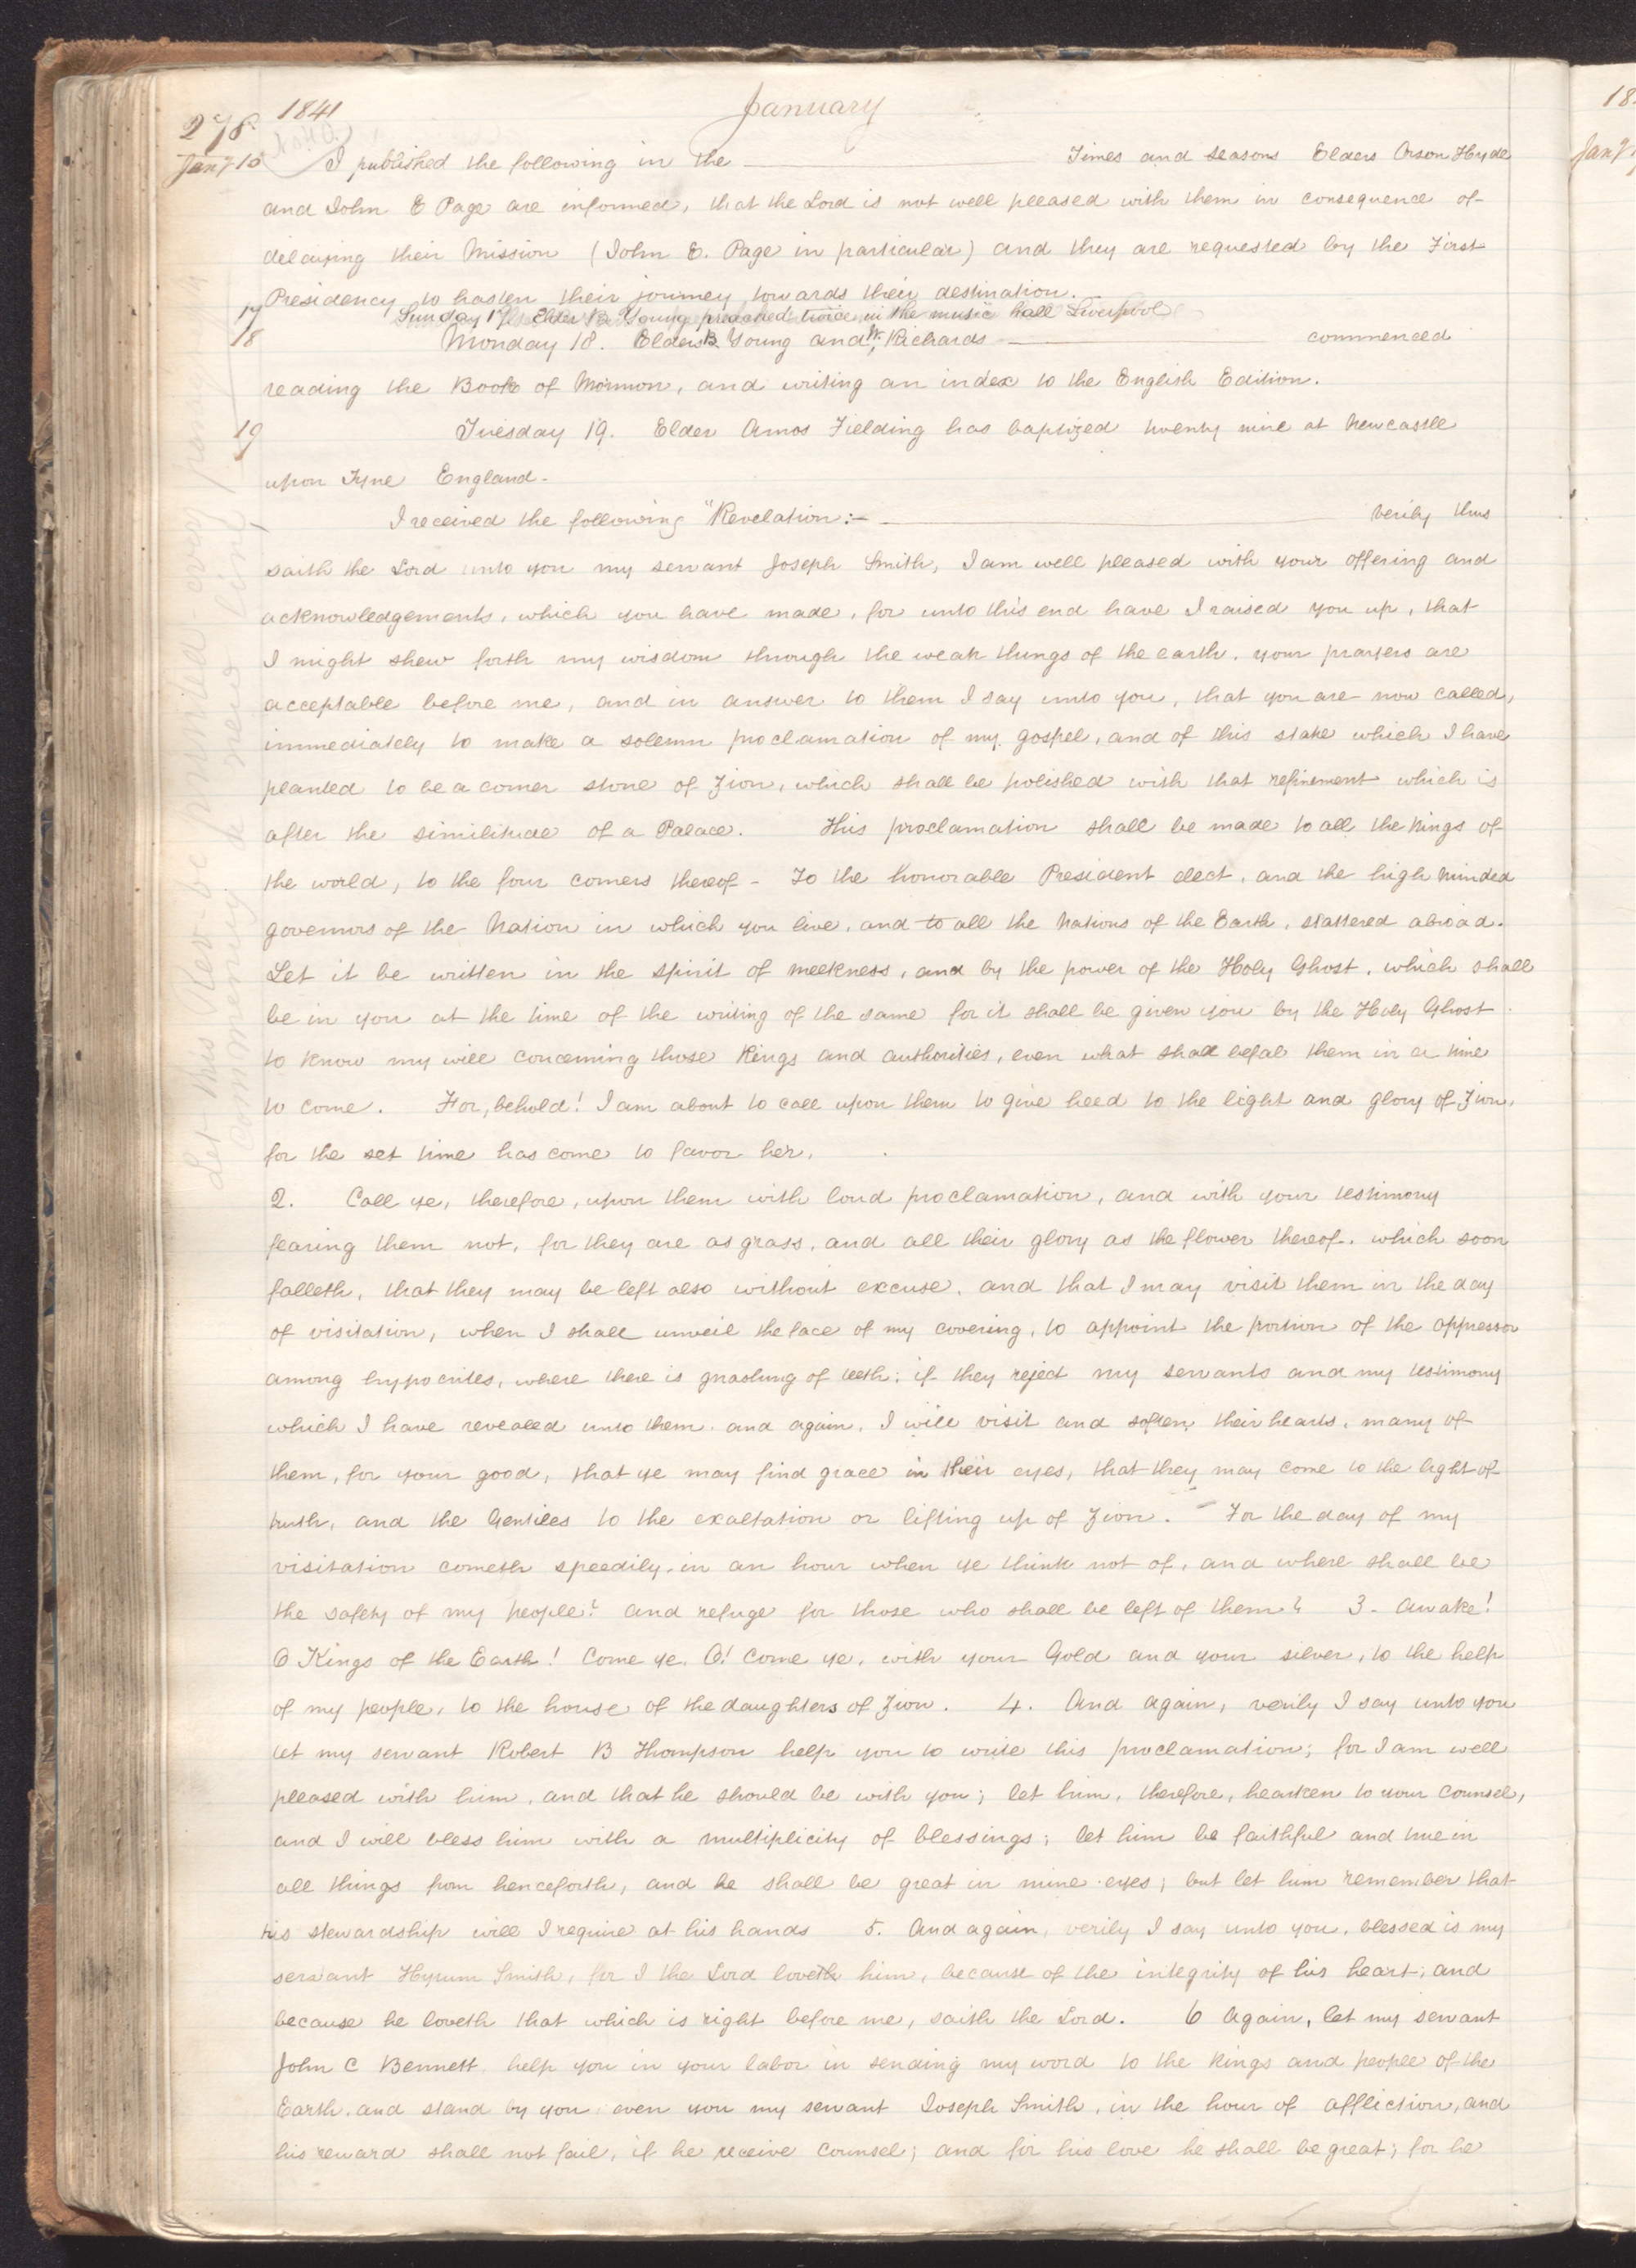 1841 January
278
Jany 10 I published the following in the — Times and Seasons Elders Orson Hyde
and John E Page are informed, that the Lord is not well pleased with them in consequence of
delaying their Mission (John E. Page in particular) and they are requested by the First
Presidency, to hasten their journey towards their destination.
17 Sunday 17 Elder B. Young preached twice in the music hall Liverpool
18 Monday 18. Elders B. Young and W. Richards — commenced
reading the Book of Mormon, and writing an index to the English Edition.
19 Tuesday 19. Elder Amos Fielding has baptized twenty nine at Newcastle
upon Tyne England.
I received the following "Revelation:— — Verily thus
saith the Lord unto you my servant Joseph Smith, I am well pleased with your offering and
acknowledgements, which you have made, for unto this end have I raised you up, that
I might shew forth my wisdom through the weak things of the earth. your prayers are
acceptable before me, and in answer to them I say unto you, that you are now called,
immediately to make a solemn proclamation of my gospel, and of this stake which I have
planted to be a corner stone of Zion, which shall be polished with that refinement which is
after the similitude of a Palace. This proclamation shall be made to all the kings of
the world, to the four corners thereof - To the honorable President elect, and the high minded
governors of the Nation in which you live, and to all the Nations of the Earth, scattered abroad.
Let it be written in the spirit of meekness, and by the power of the Holy Ghost, which shall
be in you at the time of the writing of the same for it shall be given you by the Holy Ghost
to know my will concerning those Kings and authorities, even what shall befal them in a time
to come. For, behold! I am about to call upon them to give heed to the light and glory of Zion,
for the set time has come to favor her.
2. Call ye, therefore, upon them with loud proclamation, and with your testimony
fearing them not, for they are as grass, and all their glory as the flower thereof. which soon
falleth, that they may be left also without excuse, and that I may visit them in the day
of visitation, when I shall unveil the face of my covering, to appoint the portion of the oppressor
among hypocrites, where there is gnashing of teeth; if they reject my servants and my testimony
which I have revealed unto them. and again, I will visit and soften their hearts, many of
them, for your good, that ye may find grace in their eyes, that they may come to the light of
truth, and the Gentiles to the exaltation or lifting up of Zion. For the day of my
visitation cometh speedily, in an hour when ye think not of, and where shall be
the safety of my people? and refuge for those who shall be left of them? 3. Awake!
O Kings of the Earth! Come ye, O! Come ye, with your Gold and your silver, to the help
of my people, to the house of the daughters of Zion. 4. And again, verily I say unto you
let my servant Robert B Thompson help you to write this proclamation; for I am well
pleased with him, and that he should be with you; let him, therefore, hearken to your counsel,
and I will bless him with a multiplicity of blessings; let him be faithful and true in
all things from henceforth, and he shall be great in mine eyes; but let him remember that
his stewardship will I require at his hands 5. And again, verily I say unto you, blessed is my
servant Hyrum Smith, for I the Lord loveth him, because of the integrity of his heart; and
because he loveth that which is right before me, saith the Lord. 6 Again, let my servant
John C Bennett help you in your labor in sending my word to the kings and people of the
Earth. and stand by you even you my servant Joseph Smith, in the hour of affliction, and
his reward shall not fail, if he receive counsel; and for his love he shall be great; for he
Let this Rev be
commencing a new line
18
Jany